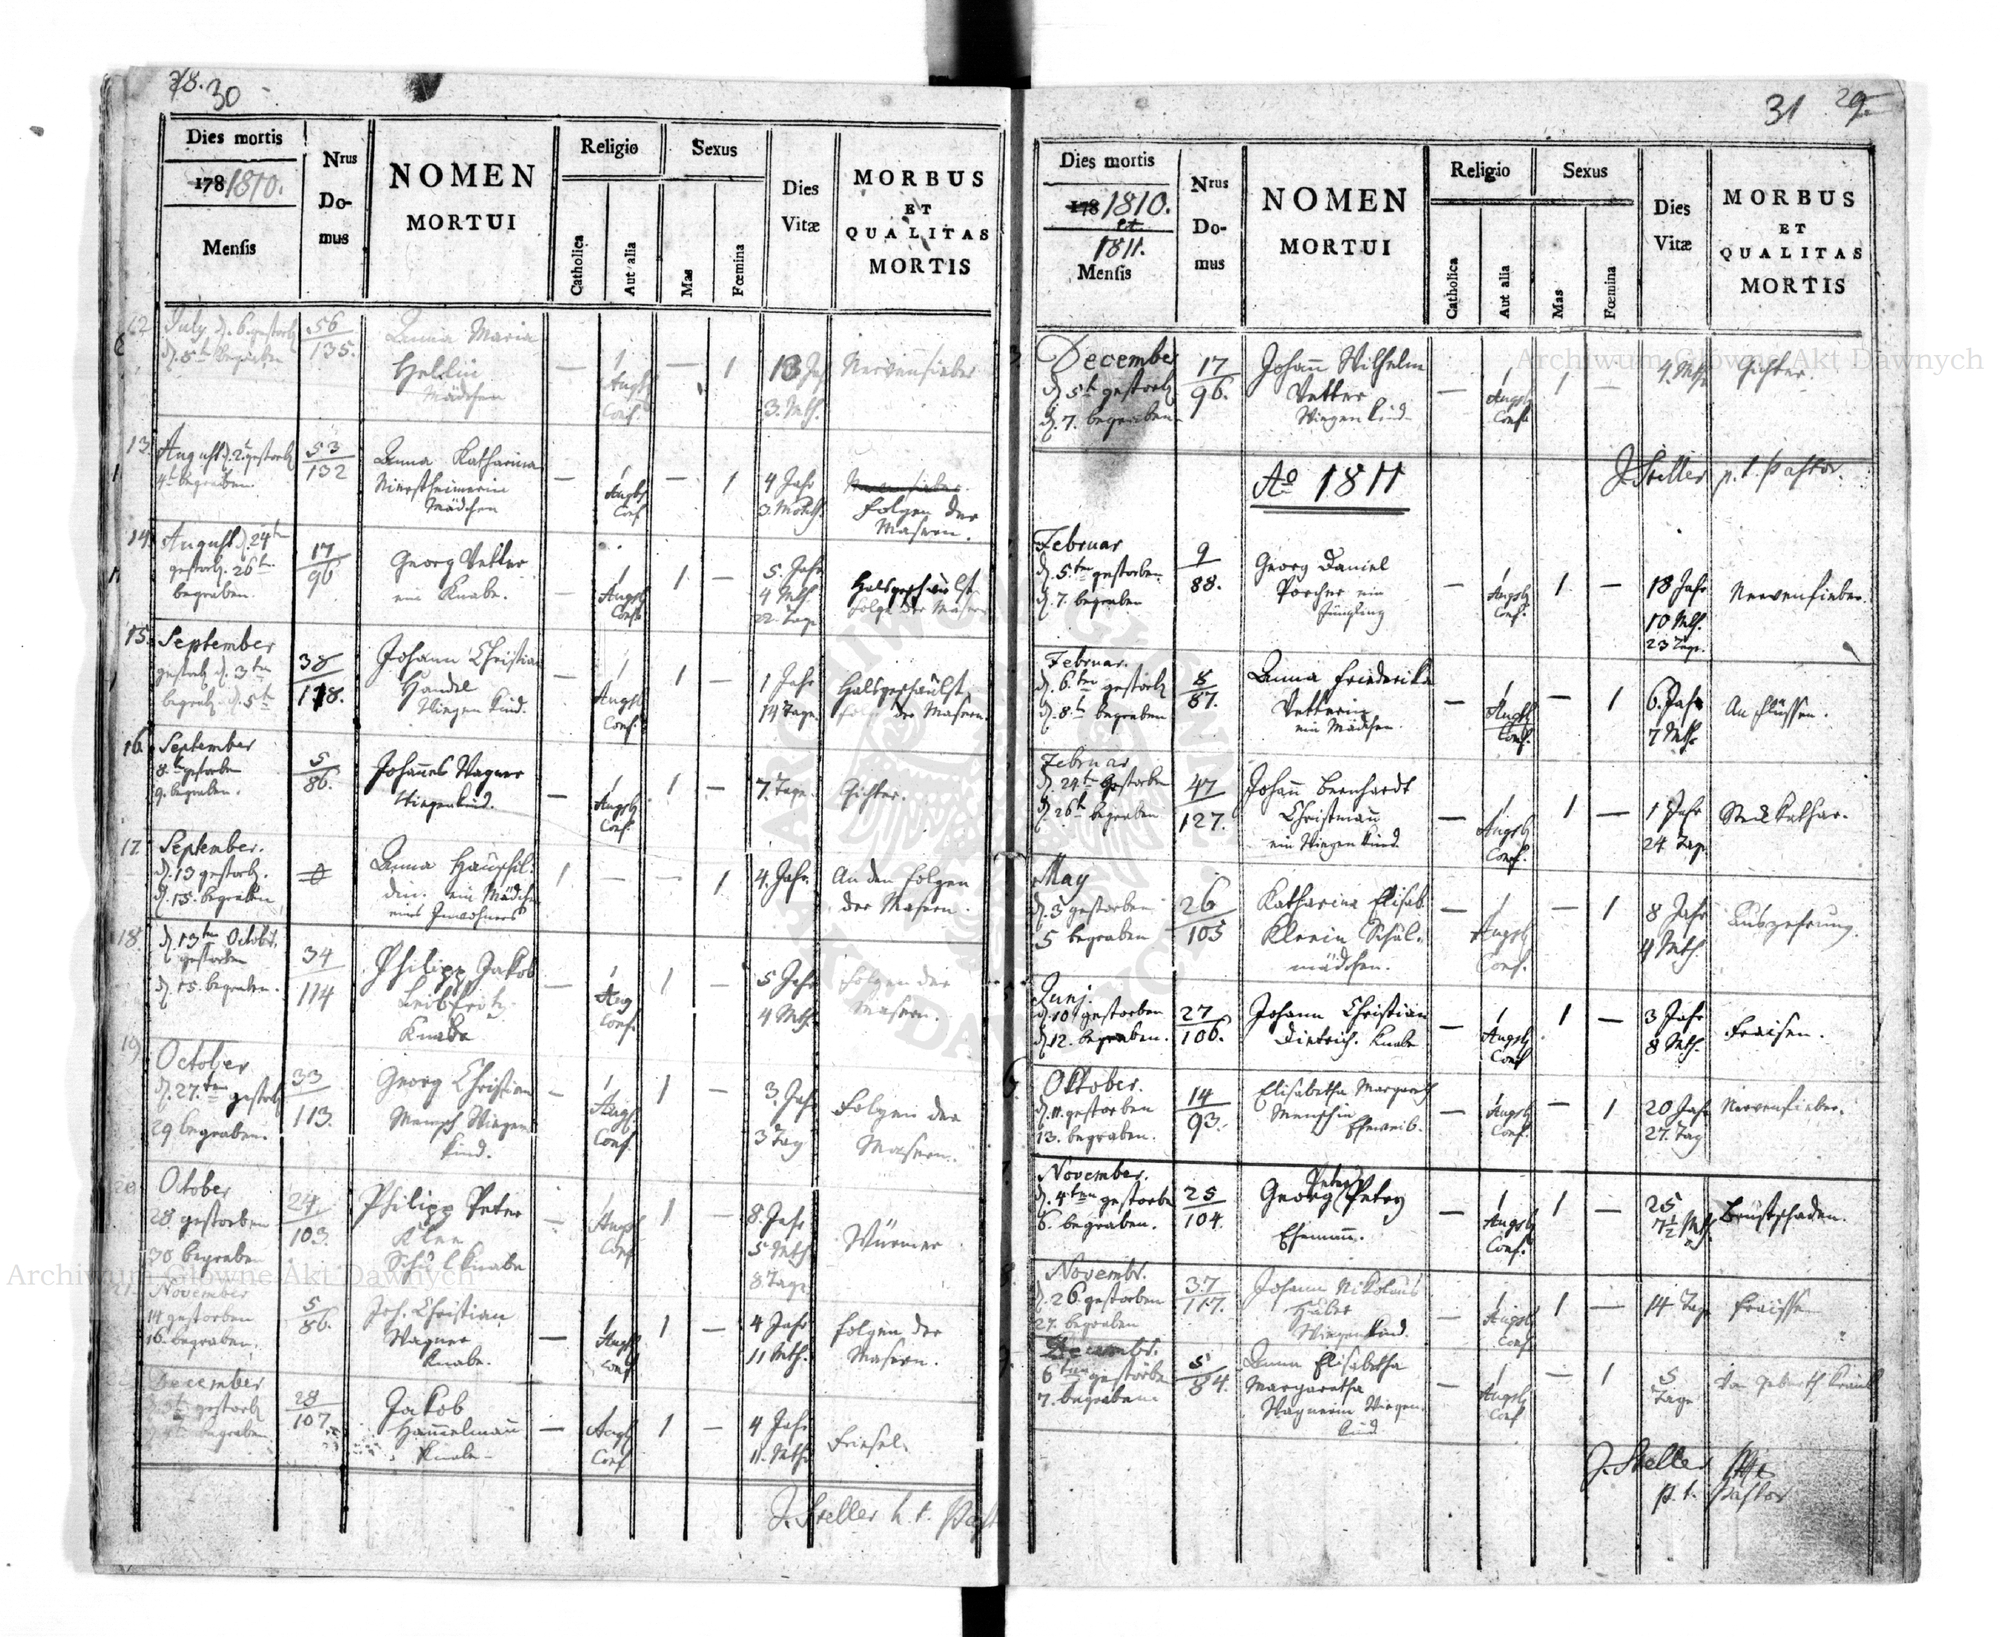 78. 30
Dies mortis
178 1810.
Mensis
Nrus
Do-
mus
NOMEN
MORTUI
Religio
Catholica
Aut alia
Sexus
Mas
Fœmina
Dies
Vitæ
MORBUS
ET
QUALITAS
MORTIS
12 July d. 6 gestorb
d. 8t begraben
56
135.
Anna Maria
Hellin
Mädchen
— 1 — 1
Augsb
Conf.
13 Jah
3. Mth.
Nervenfieber
13. August d. 2. gestorb
4t begraben.
53
132
Anna Katharina
Nierstheimerin
Mädchen
— 1 — 1
Augsb
Conf
4 Jahr
3. Month.
Nervenfieber.
Folgen der
Masern.
14. August d. 24tn
gestorb. 26tn
begraben.
17
96
Georg Vetter
ein Knabe.
— 1 1 —
Augsb
Conf.
5. Jahr
4 Mth.
22. Tage
Halsgeschwülst
Folge der Masern
15. September
gestorb d. 3ten
begrab. d. 5t
38
118.
Johann Christian
Handel
Wiegen Kind.
— 1 1 —
Augsb
Conf.
1 Jahr
14 Tage.
Halsgeschwülst
Folge der Masern.
16. September
8.t gestorben
9. begraben.
5
86.
Johannes Wagner
Wiegenkind.
— 1 1 —
Augsb
Conf.
7. Tage.
Gichter.
17. September.
d. 13 gestorb.
d. 15. begraben
0
Anna
din. ein Mädchen
eines Inwohners
1 — — 1
4. Jahr.
An den Folgen
der Masern.
18. d. 13ten Octobr.
gestorben
d. 15. begraben.
34
114
Philipp Jakob
Leibfritz
Knabe
— 1 1 —
Aug
Conf.
5 Jahr
4 Mth.
Folgen der
Masern.
19. October
d. 27.ten gestorb
29 begraben.
33
113.
Georg Christian
Mensch Wiegen
kind.
— 1 1 —
Augs.
Conf.
3. Jahr
3 Tag
Folgen der
Masern.
20. October
28 gestorben
30 begraben
24
103.
Philipp Peter
Klee
Schul Knabe
— 1 1 —
Augsb
Conf
8. Jahr
5 Mth
8 Tage
Würmer
21. November
14 gestorben
16. begraben.
5
86.
Joh. Christian
Wagner
Knabe.
— 1 1 —
Augsb
Conf
4 Jahr
11 Mth.
Folgen der
Masern.
December
gestorb
begraben
28
107
Jakob
Hammelmann
Knabe
— Augsb 1 —
Conf
4 Jahr
11. Mth.
Friesel.
J. Steller h. t. Past
31 29.
Dies mortis
178 1810.
et
1811.
Mensis
Nrus
Do-
mus
NOMEN
MORTUI
Religio
Catholica
Aut alia
Sexus
Mas
Fœmina
Dies
Vitæ
MORBUS
ET
QUALITAS
MORTIS
December
d. 5t gestorb
d. 7. begraben
17
96.
Johann Wilhelm
Vetter
Wiegen Kind.
— 1 1 —
Augsb
Conf.
4. Mth
Gichter.
J. Steller p. t. Pastor.
Ao 1811
Februar
d. 5.ten gestorben
d. 7. begraben
9
88.
Georg Daniel
Porcher ein
Jüngling
— 1 1 —
Augsb
Conf.
18 Jahr
10 Mth.
23 Tage.
Nervenfieber.
Februar.
d. 6.ten gestorb
d. 8.t begraben
8
87.
Anna Friederika
Vetterin
ein Mädchen
— 1 — 1
Augsb
Conf.
6. Jahr
7 Mth.
An Flüssen.
Februar
d. 24t gestorben
d. 26t begraben
47
127.
Johann Bernhardt
Christmann
ein Wiegen Kind.
— 1 1 —
Augsb
Conf.
1 Jahr
24 Tag
Kathar.
May
d. 3 gestorben
5 begraben
26
105
Katharina Elisab
Kleein Schul-
mädchen.
— 1 — 1
Augsb
Conf.
8 Jahr
4 Mth.
Auszehrung.
Junj.
d. 10 gestorben
d. 12. begraben.
27
106.
Johann Christian
Dietrich. Knabe
— 1 1 —
Augsb
Conf
3 Jahr
8 Mth.
Fraisen.
Oktober.
d. 11. gestorben
13. begraben.
14
93.
Elisabetha Margareth
Menschin
Eheweib.
— 1 — 1
Augsb
Conf.
20 Jah
27. Tag
Nervenfieber.
November.
d. 4ten gestorben
6. begraben.
25
104.
Peter
Georg Petry
Ehemann.
— 1 1 —
Augsb
Conf.
25
7½ Mth.
Brustschaden.
Novembr.
d. 26. gestorben
27. begraben
37.
117.
Johann Nikolaus
Huber
Wiegenkind.
— 1 1 —
Augsb
Conf.
14 Tage
Fraissen
Decembr.
6ten gestorben
7. begraben.
5
84.
Anna Elisabetha
Margaretha
Wagnerin Wiegen
kind
— 1 — 1
Augsb
Conf
5
Tage
Von Geburth krank
J. Steller
p. t. Pastor
Archiwum Główne Akt Dawnych
Archiwum Główne Akt Dawnych
ARCHIWUM GŁÓWNE AKT DAWNYCH